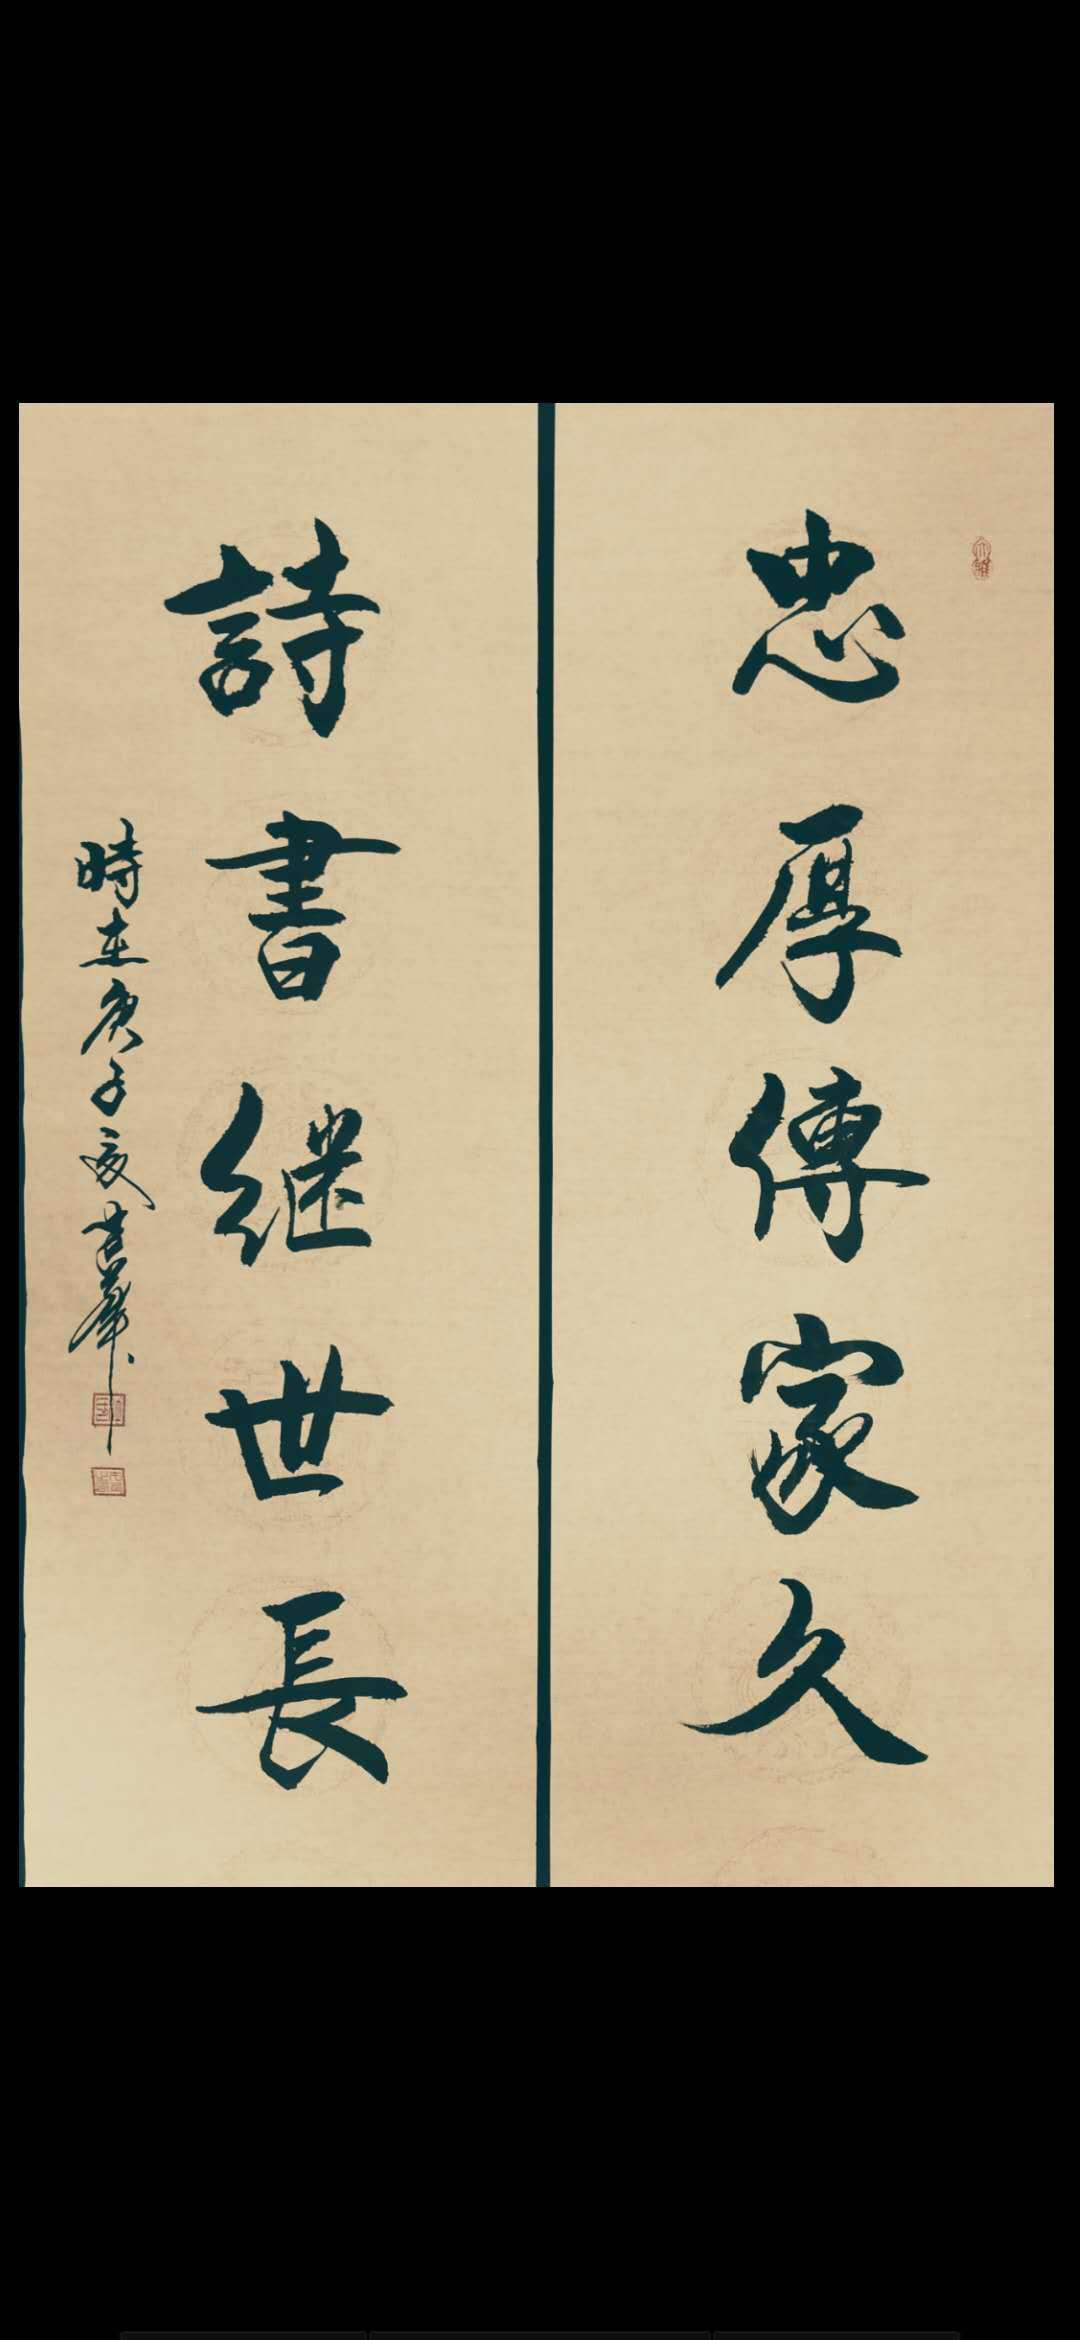 忠厚傳家久
詩書继世長
時在庚子夏